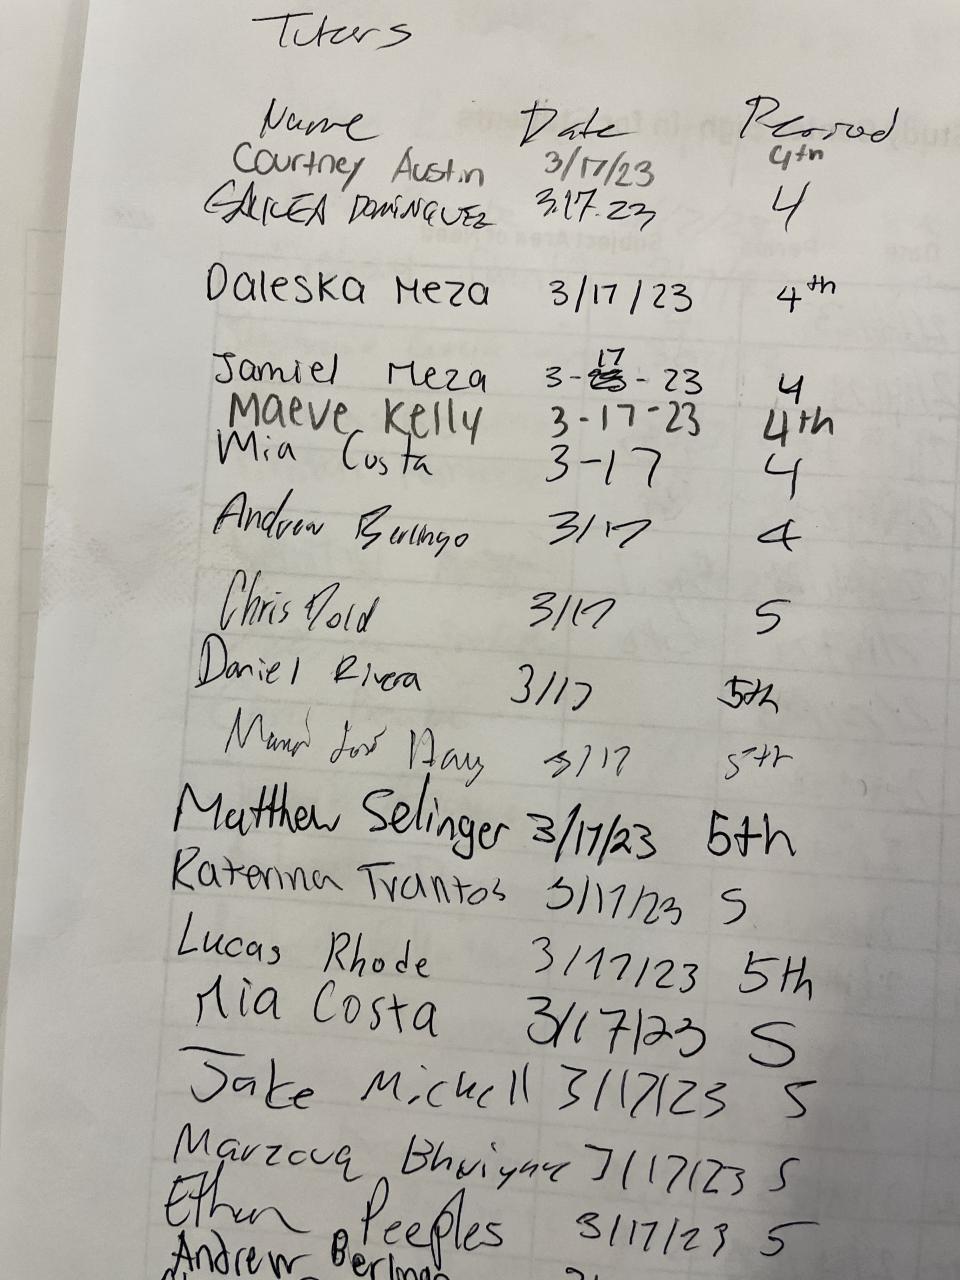 Tutors
Name Date Period
Courtney Austin 3/17/23 4th
GALILEA DOMINGUEZ 3.17.23 4
Daleska Meza 3/17/23 4th
Jamiel Meza 3-17-23 4
Maeve Kelly 3-17-23 4th
Mia Costa 3-17 4
Andrew Berlingo 3/17 4
Chris Dold 3/17 5
Daniel Rivera 3/17 5th
José 3/17 5th
Matthew Selinger 3/17/23 5th
Katerina Trantos 3/17/23 5
Lucas Rhode 3/17/23 5th
Mia Costa 3/17/23 5
Jake Mickell 3/17/23 5
Marzouq 3/17/23 5
Ethan Peeples 3/17/23 5
Andrew